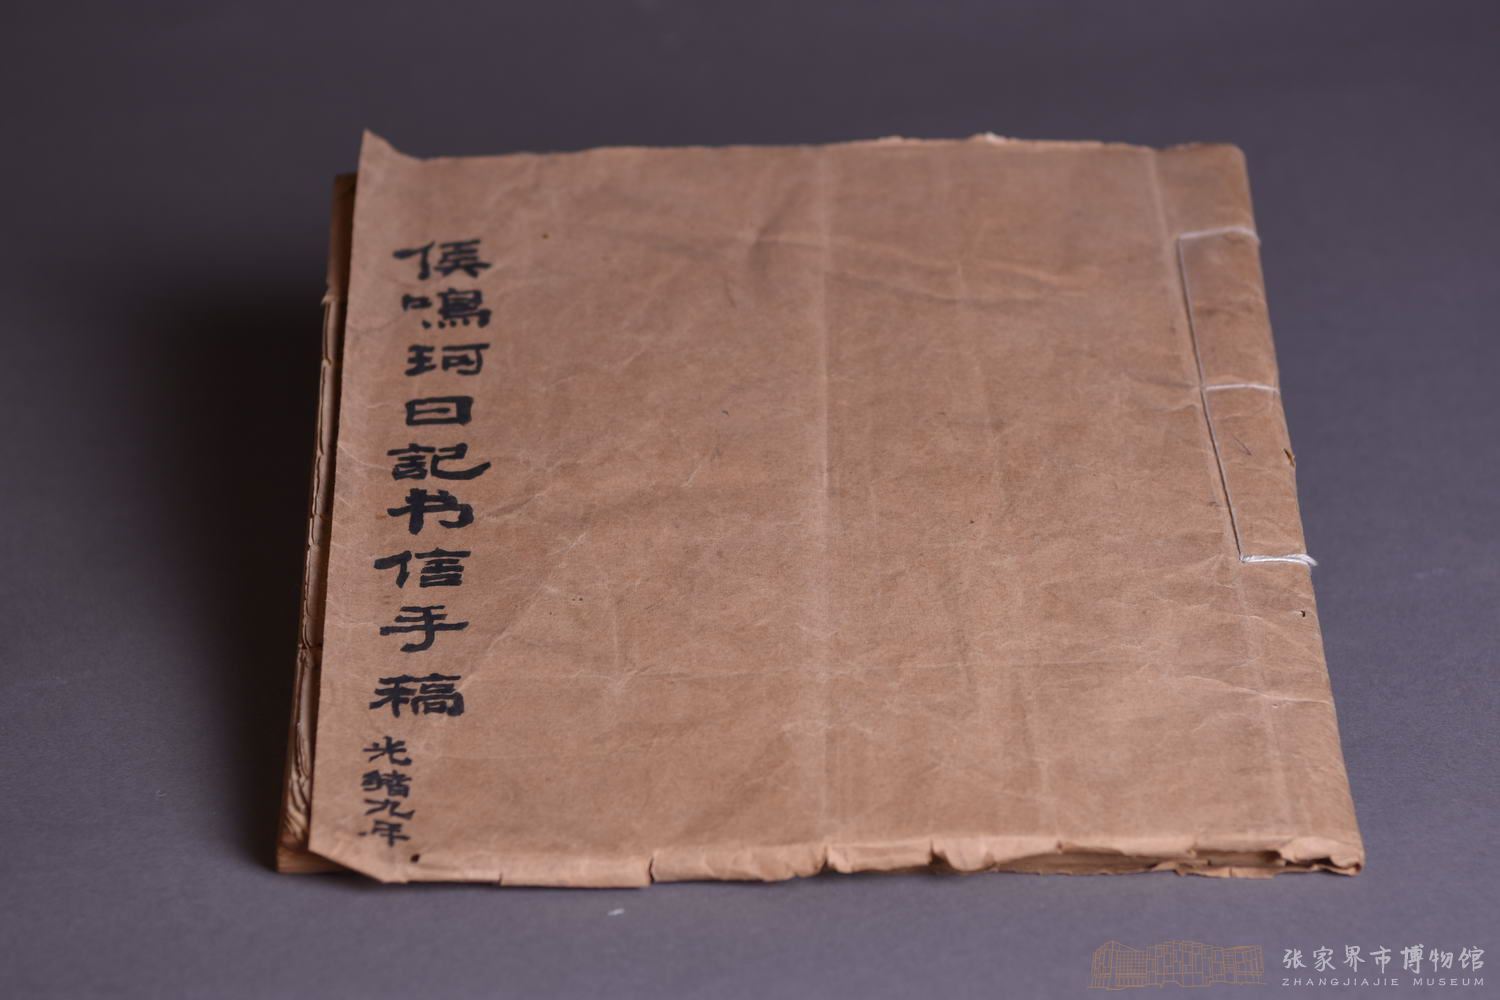 侯鳴珂日記书信手稿
光緖九年
张家界市博物馆
ZHANGJIAJIE MUSEUM